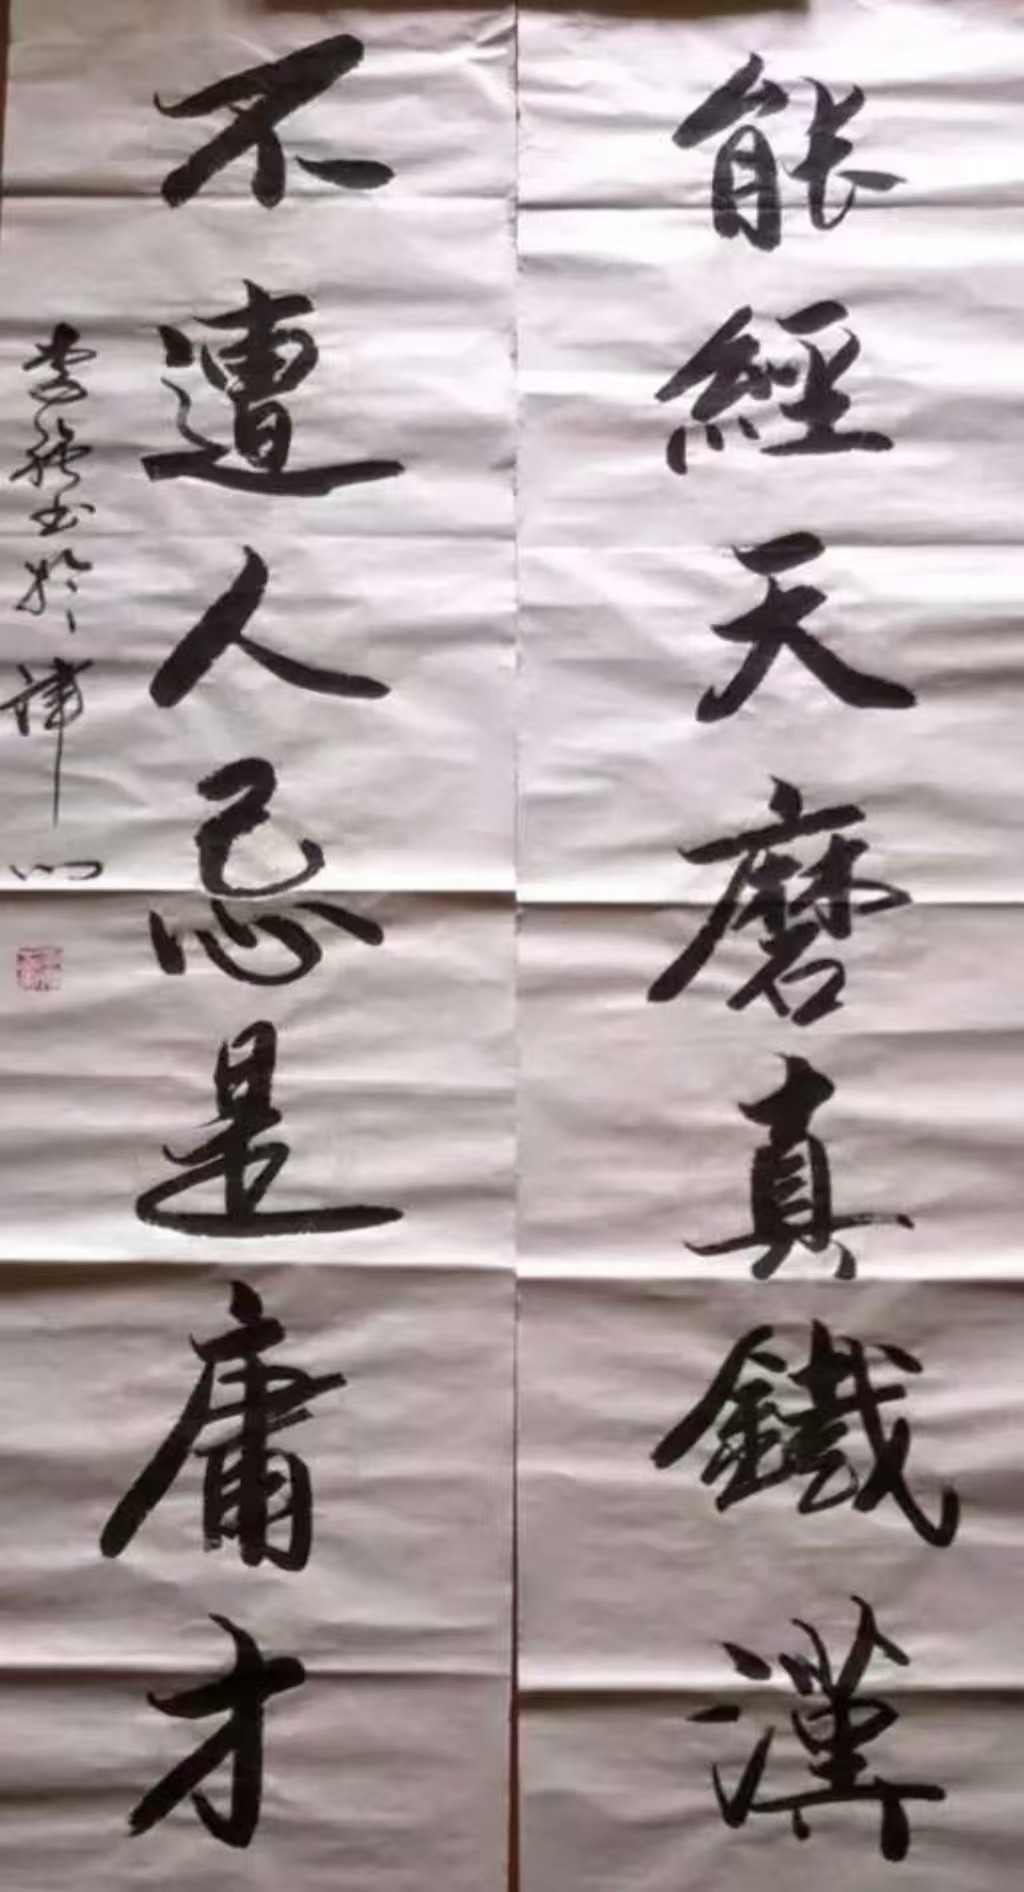 能經天磨真鐵漢
不遭人忌是庸才
書於津